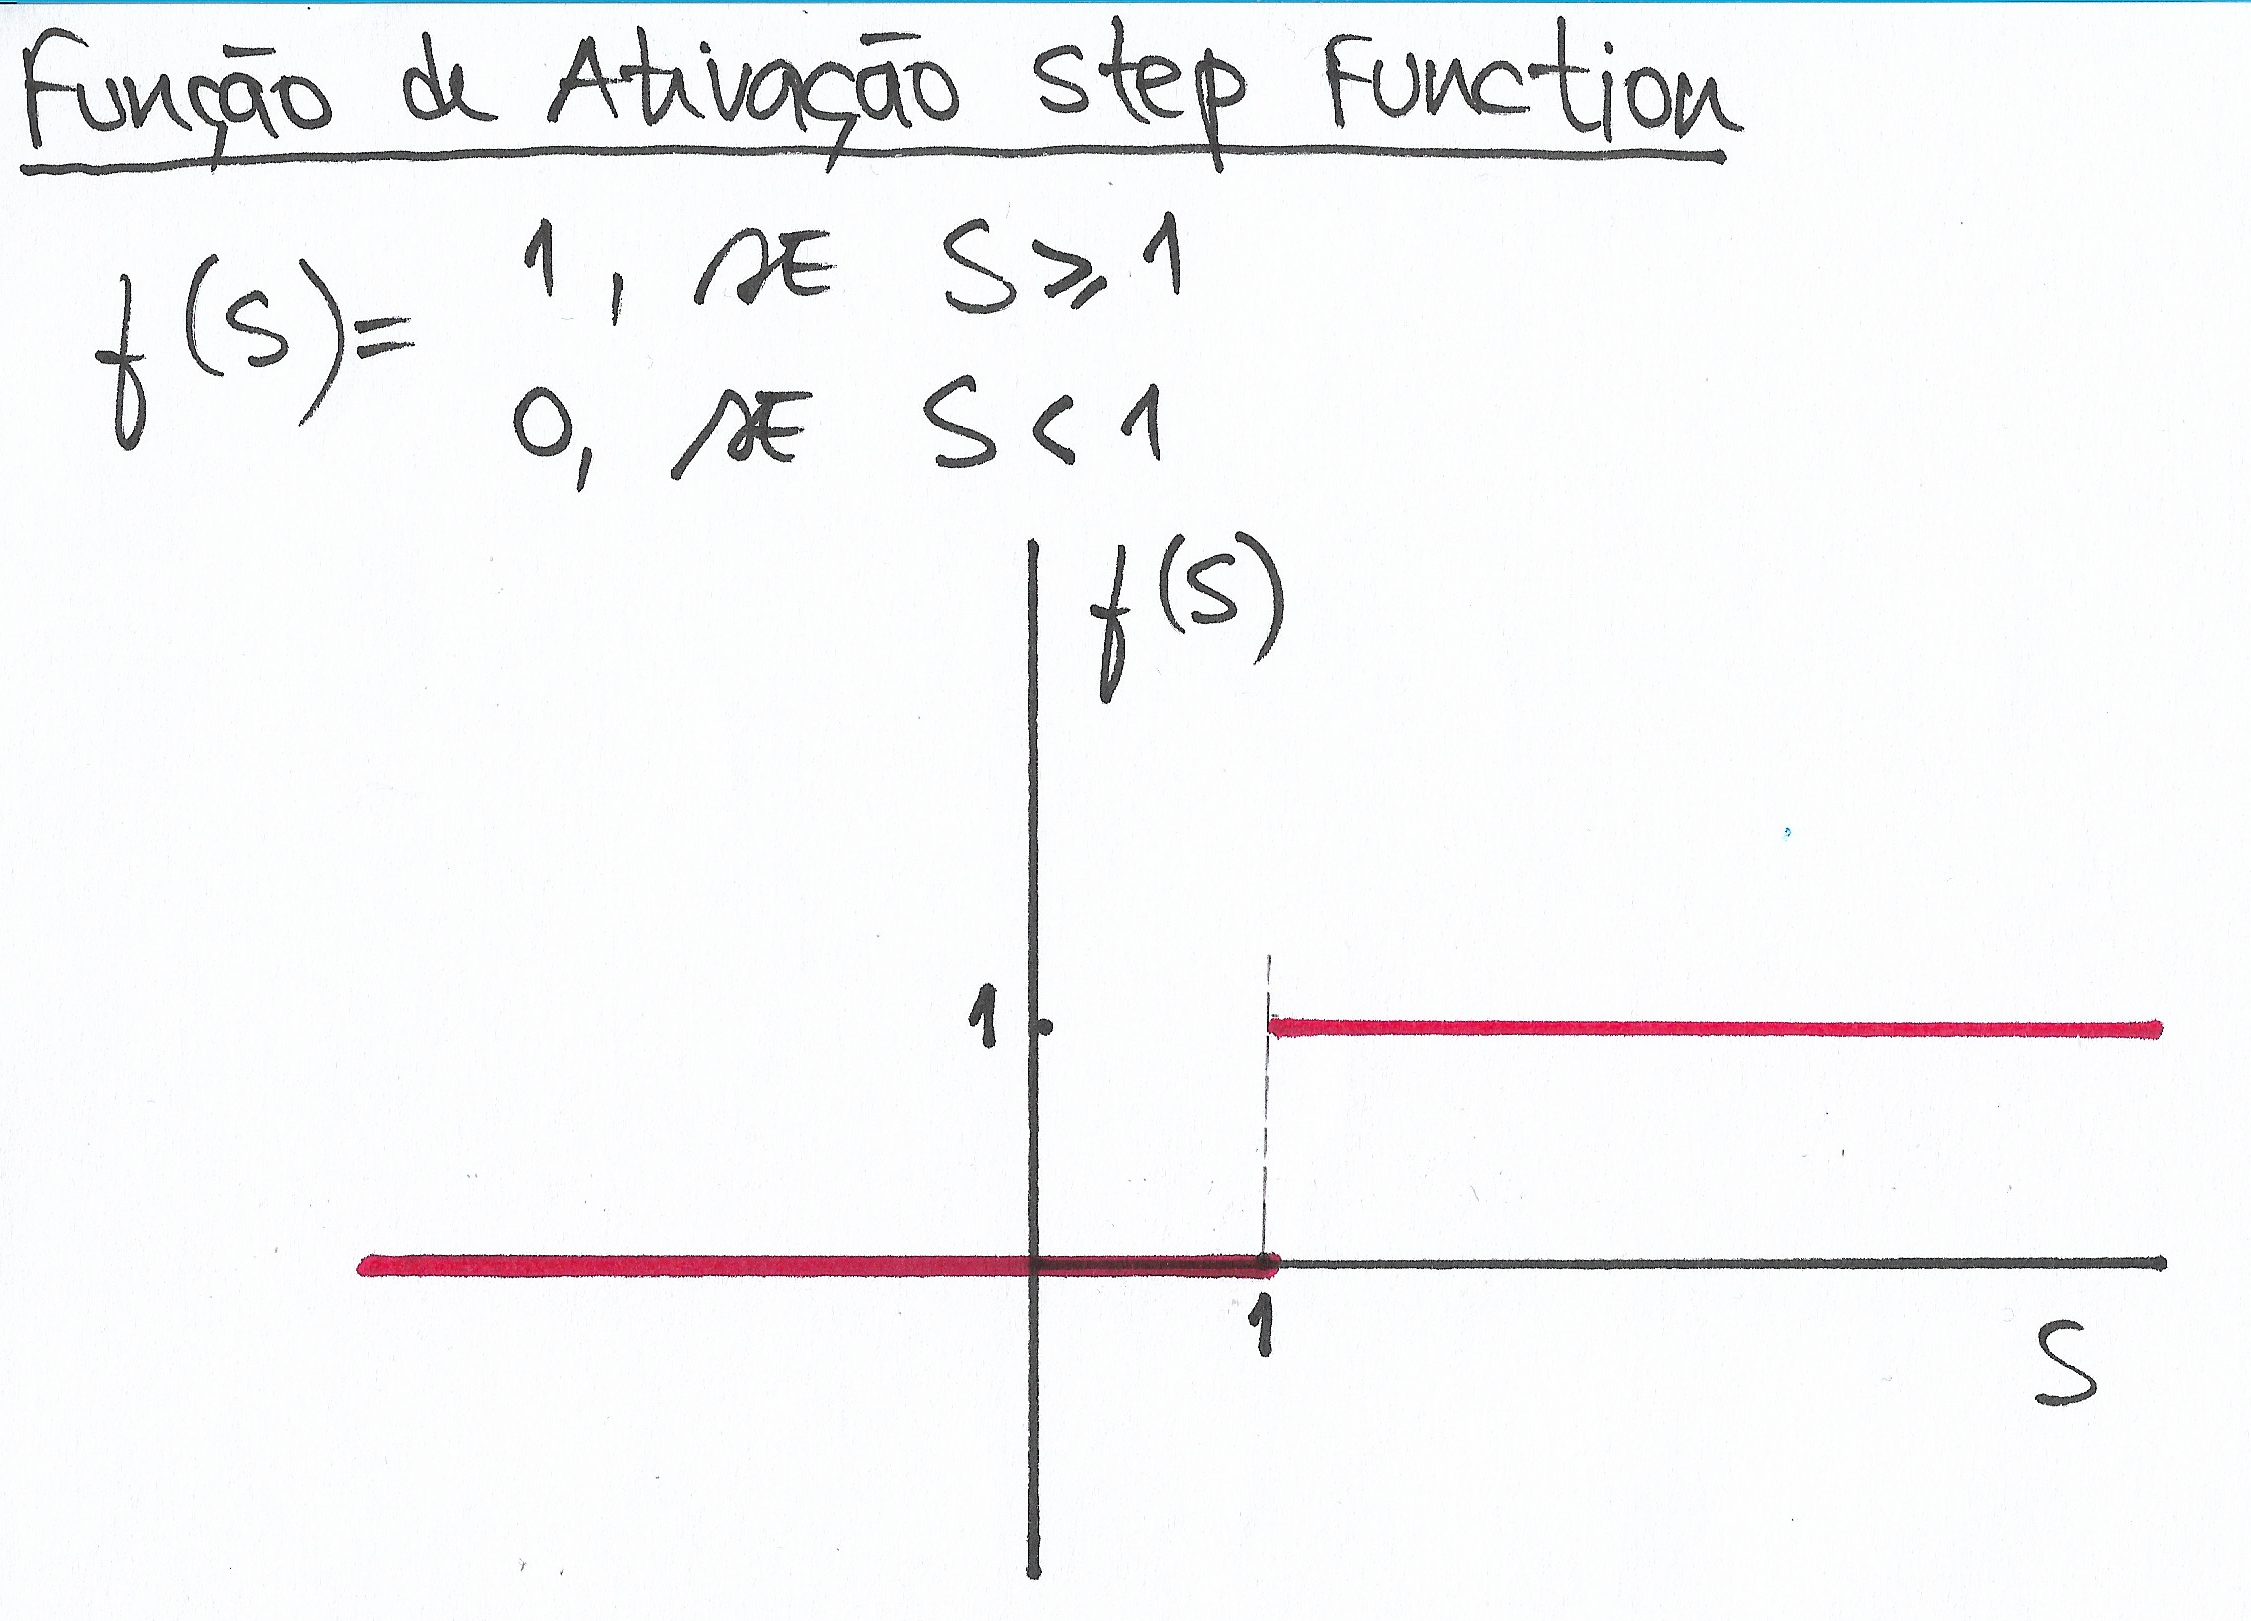 Função de Ativação Step Function
1, se S ≥ 1
f(S)=
0, se S < 1
f(S)
1
1
S